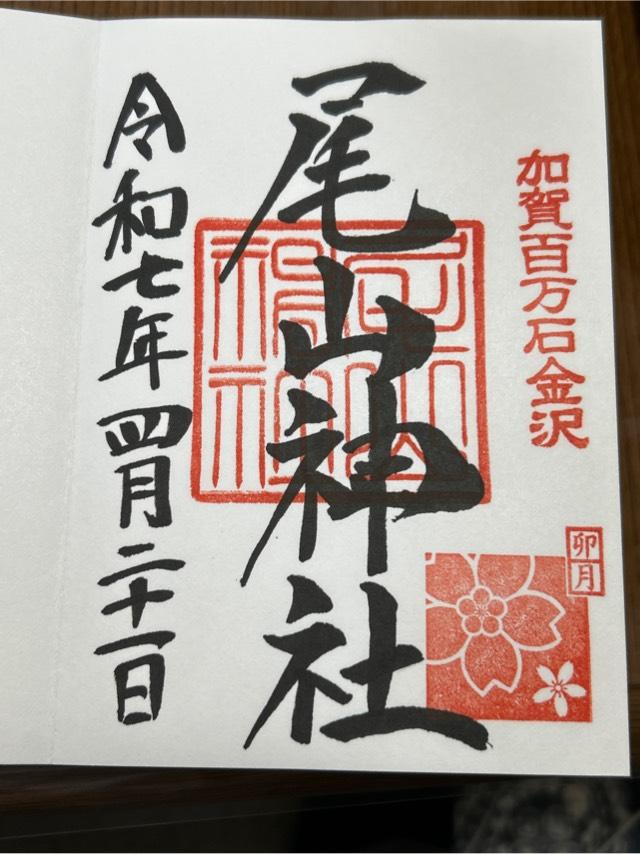 加賀百万石金沢
卯月
尾山神社
令和七年四月二十一日